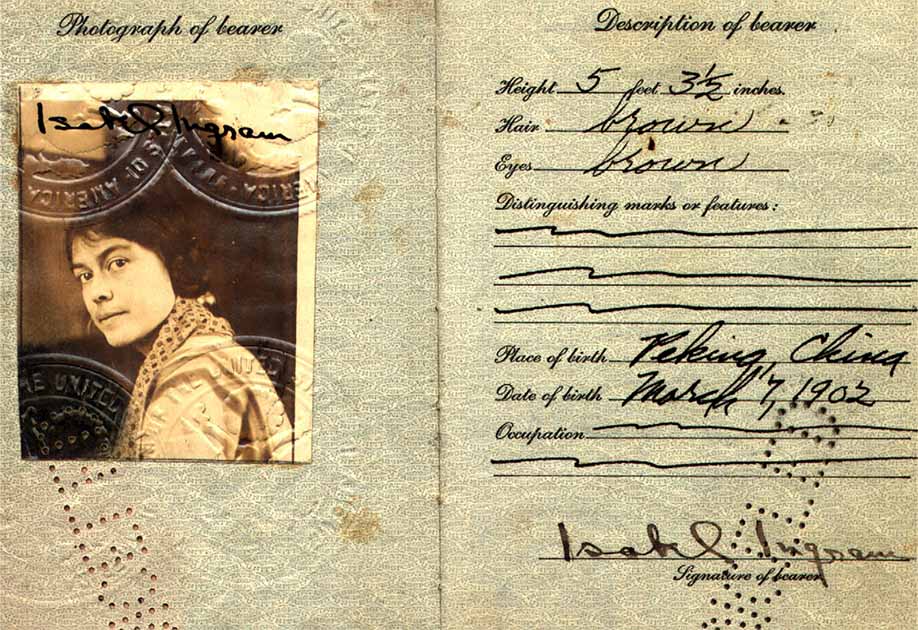 Photograph of bearer
Isabel Ingram
S OF AMERICA
ERICA
THE UNITED
THE UNITED
Description of bearer
Height 5 feet 3½ inches.
Hair brown
Eyes brown
Distinguishing marks or features:
Place of birth Peking, China
Date of birth March 7, 1902
Occupation
Isabel Ingram
Signature of bearer